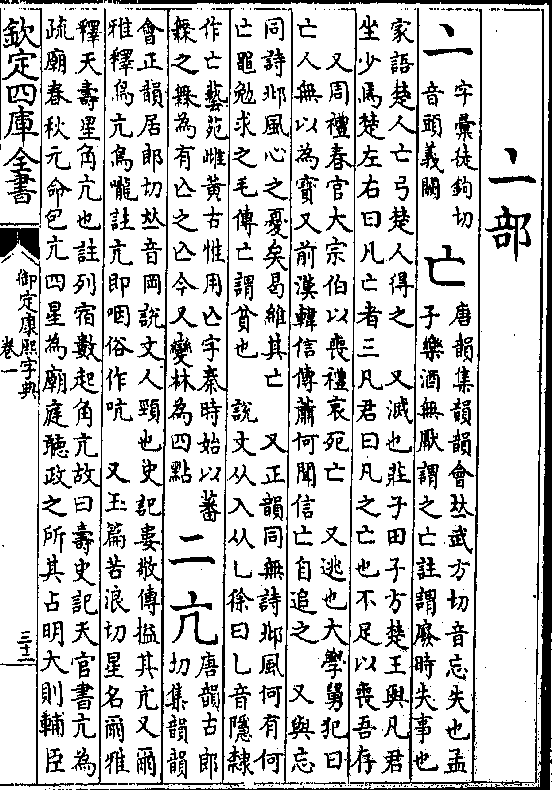 亠部
亠 字彙徒鉤切
音頭義闕
亡 唐韻集韻韻會𠀤武方切音忘失也孟
子樂酒無厭謂之亡註謂廢時失事也
家語楚人亡弓楚人得之 又滅也莊子田子方楚王與凡君
坐少焉楚左右曰凡亡者三凡君曰凡之亡也不足以喪吾存
又周禮春官大宗伯以喪禮哀死亡 又逃也大學舅犯曰
亡人無以為寶又前漢韓信傳蕭何聞信亡自追之 又與忘
同詩邶風心之憂矣曷維其亡 又正韻同無詩邶風何有何
亡黽勉求之毛傳亡謂貧也 說文从入从乚徐曰乚音隱隸
作亡藝苑雌黃古惟用亾字秦時始以蕃
橆之橆為有亾之亾今又變林為四點
二
亢 唐韻古郎
切集韻韻
會正韻居郎切𠀤音岡說文人頸也史記婁敬傳搤其亢又爾
雅釋鳥亢鳥嚨註亢即咽俗作吭 又玉篇苦浪切星名爾雅
釋天壽星角亢也註列宿數起角亢故曰壽史記天官書亢為
疏廟春秋元命包亢四星為廟庭聽政之所其占明大則輔臣
欽定四庫全書
御定康熙字典
卷一
三十二